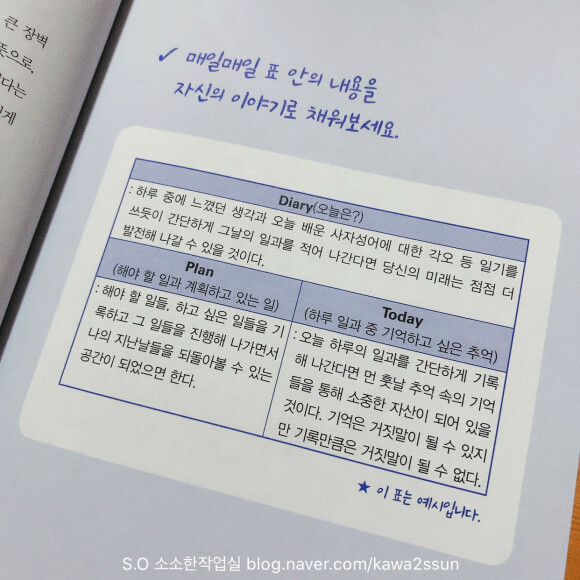 큰 장벽
뜻으로,
있다는
이게
✓ 매일매일 표 안의 내용을
자신의 이야기로 채워보세요.
Diary(오늘은?)
: 하루 중에 느꼈던 생각과 오늘 배운 사자성어에 대한 각오 등 일기를
쓰듯이 간단하게 그날의 일과를 적어 나간다면 당신의 미래는 점점 더
발전해 나갈 수 있을 것이다.
Plan
(해야 할 일과 계획하고 있는 일)
: 해야 할 일들, 하고 싶은 일들을 기
록하고 그 일들을 진행해 나가면서
나의 지난날들을 되돌아볼 수 있는
공간이 되었으면 한다.
Today
(하루 일과 중 기억하고 싶은 추억)
: 오늘 하루의 일과를 간단하게 기록
해 나간다면 먼 훗날 추억 속의 기억
들을 통해 소중한 자산이 되어 있을
것이다. 기억은 거짓말이 될 수 있지
만 기록만큼은 거짓말이 될 수 없다.
★ 이 표는 예시입니다.
S.O 소소한작업실 blog.naver.com/kawa2ssun